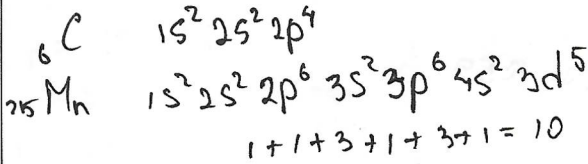 ₆C 1s² 2s² 2p⁴
₂₅Mn 1s² 2s² 2p⁶ 3s² 3p⁶ 4s² 3d⁵
1+1+3+1+3+1=10